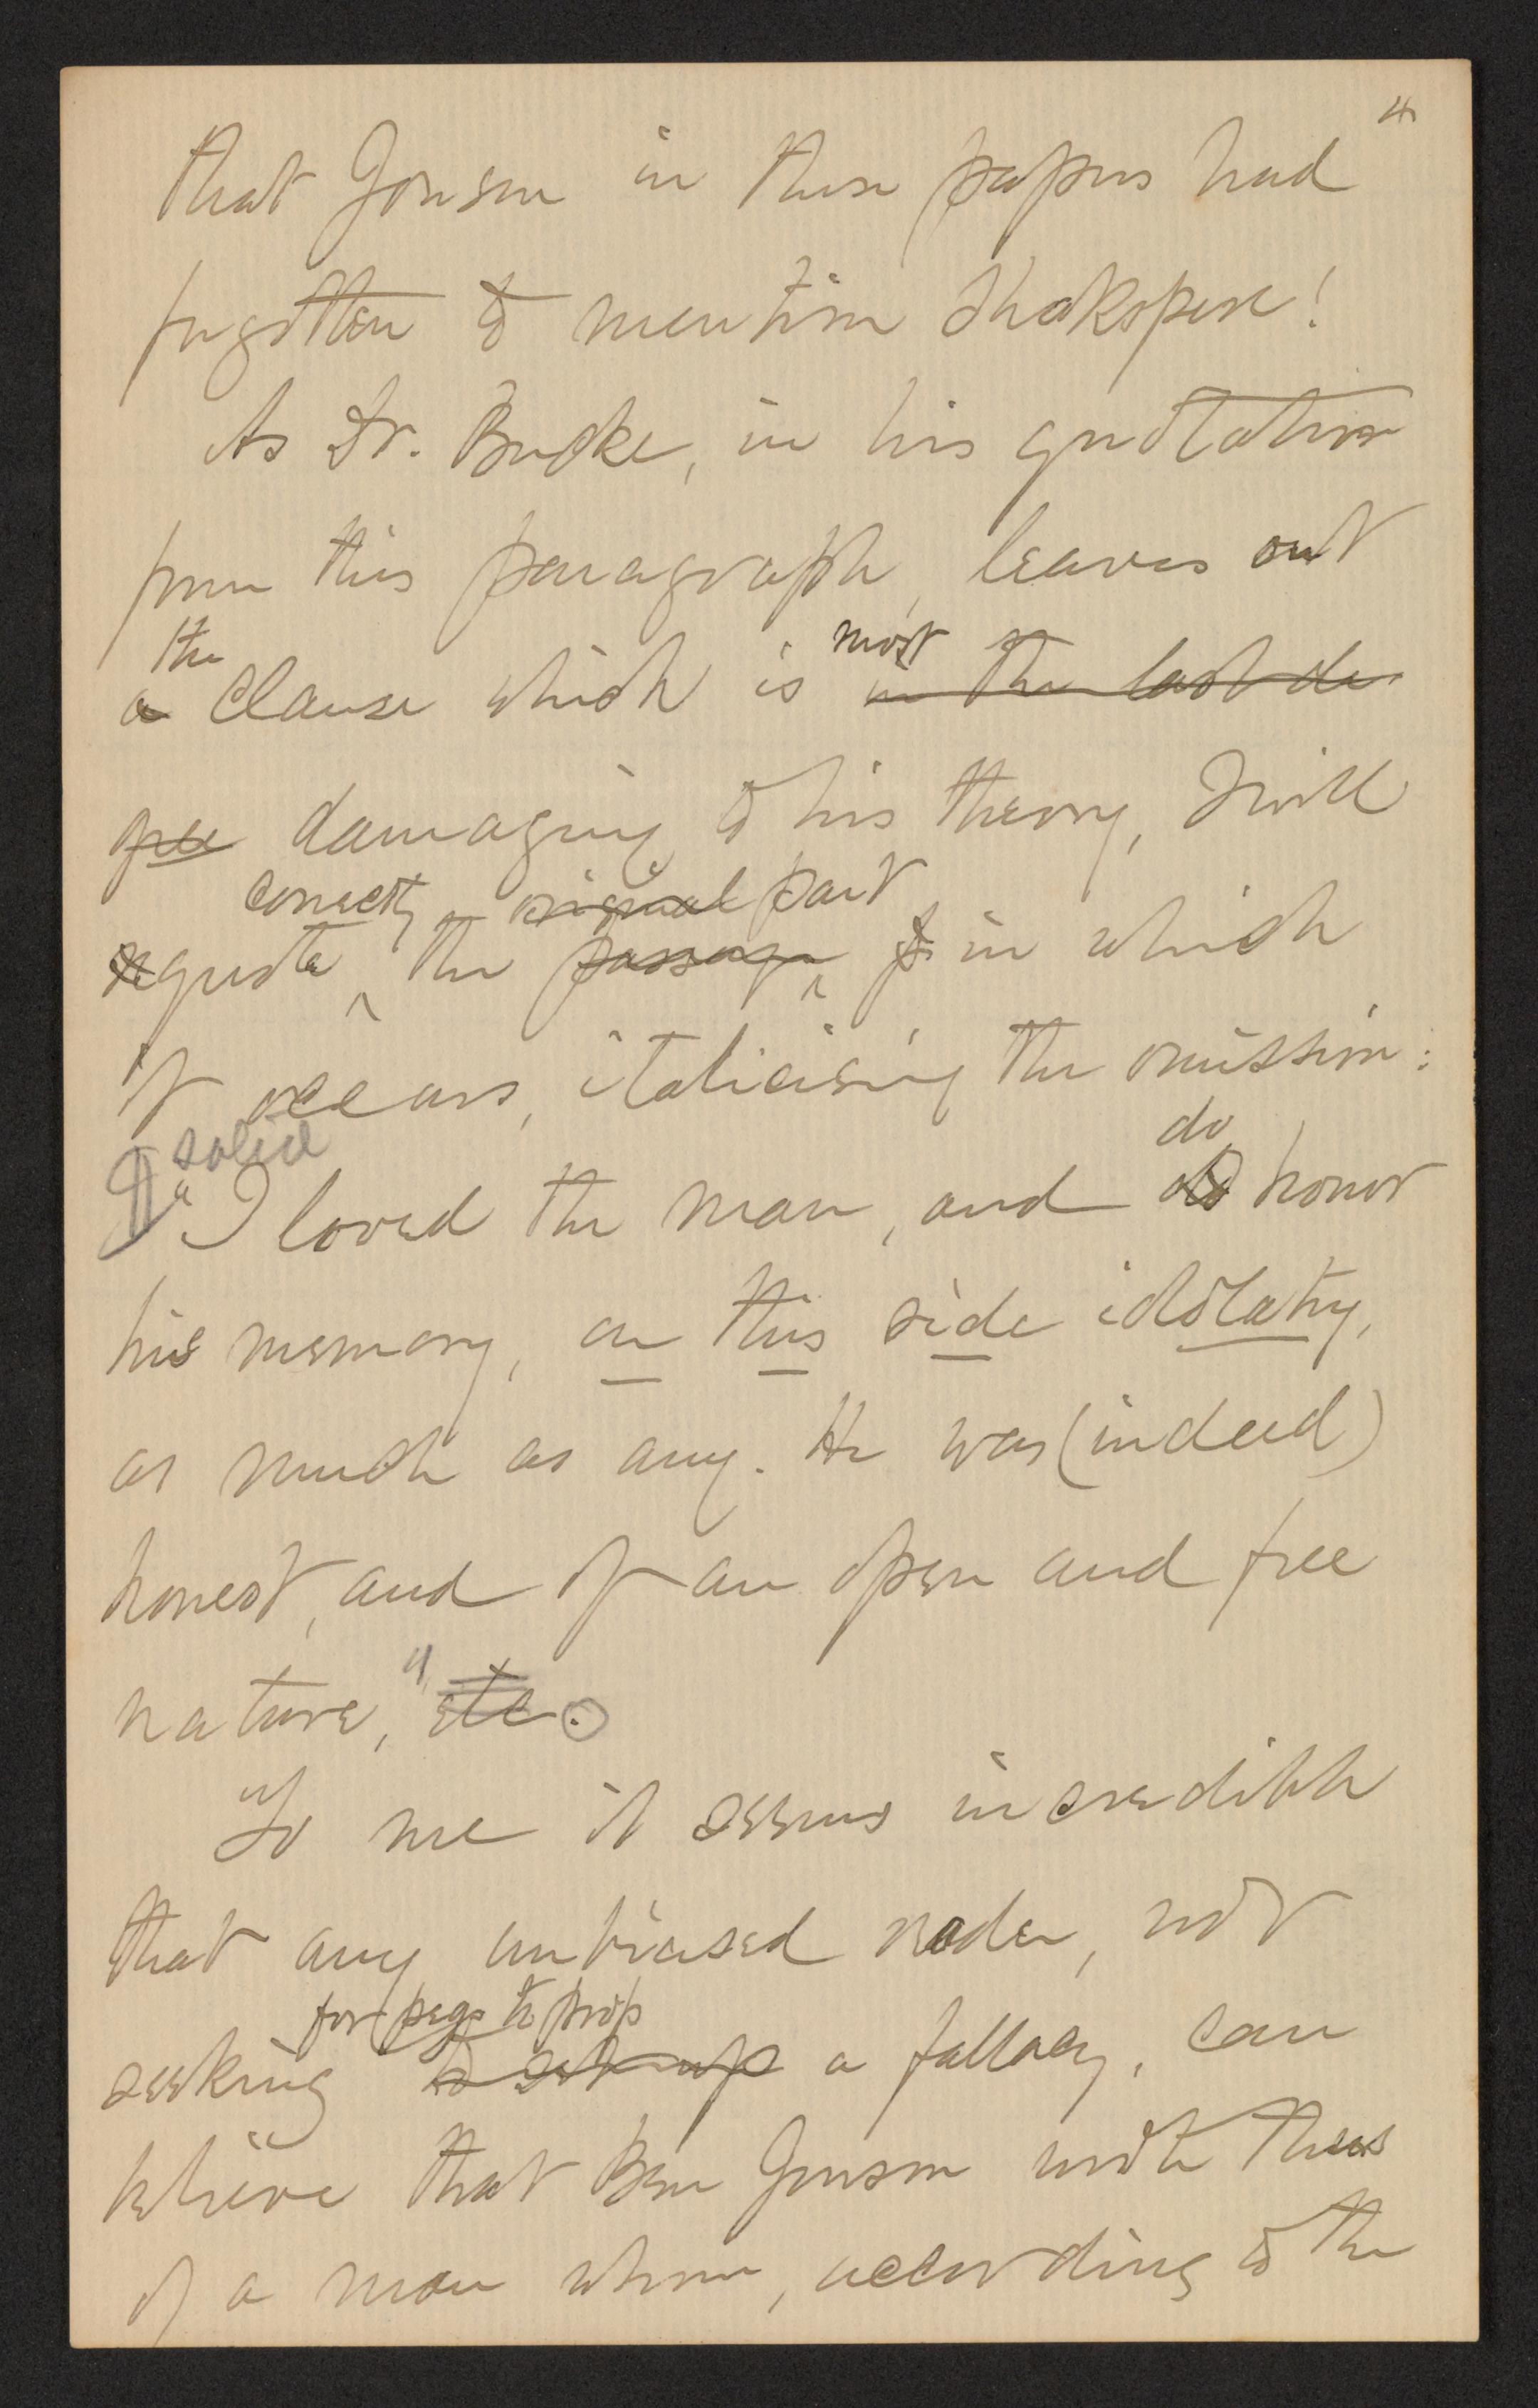 4
that Jonson in these papers had
forgotten to mention Shakspere!
As Dr. Bucke, in his quotation
from this paragraph, leaves out
the most
a clause which is in the last de-
gree damaging to his theory, I will
correctly original part
requote the passage in which
it occurs, italicising the omission:
¶ solid
"I loved the man, and do honor
do
his memory, on this side idolatry,
as much as any. He was (indeed)
honest, and of an open and free
nature," etc.
To me it seems incredible
that any unbiased reader, not
for pegs to prop
seeking to set up a fallacy, can
believe that Ben Jonson wrote thus
of a man whom, according to the